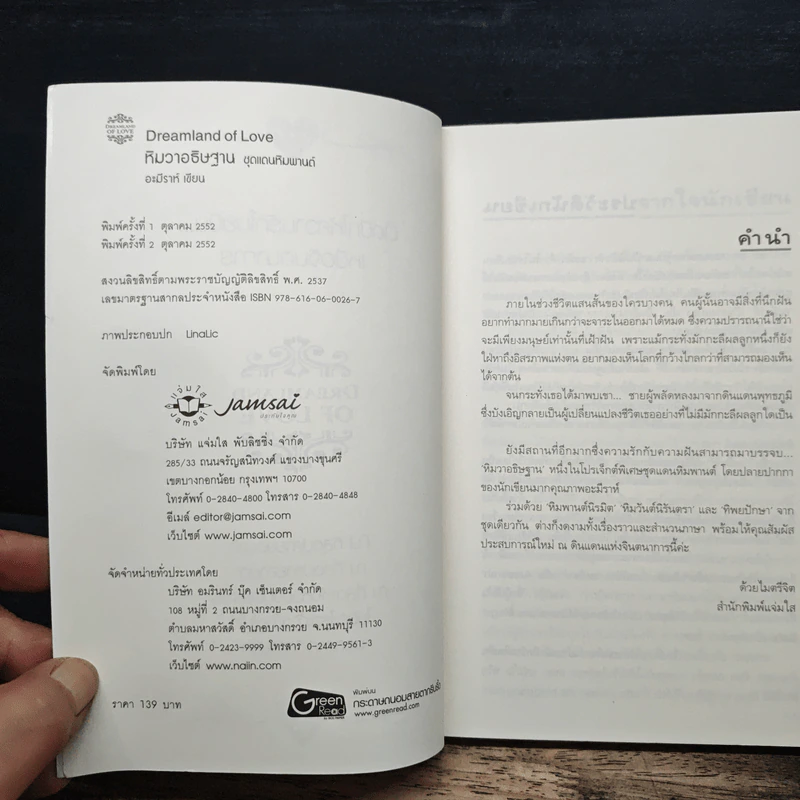 DREAMLAND
OF LOVE
Dreamland of Love
หิมวาอธิษฐาน ชุดแดนหิมพานต์
อะมีราห์ เขียน
พิมพ์ครั้งที่ 1 ตุลาคม 2552
พิมพ์ครั้งที่ 2 ตุลาคม 2552
สงวนลิขสิทธิ์ตามพระราชบัญญัติลิขสิทธิ์ พ.ศ. 2537
เลขมาตรฐานสากลประจำหนังสือ ISBN 978-616-06-0026-7
ภาพประกอบปก LinaLic
จัดพิมพ์โดย
แจ่มใส
Jamsai
jamsai
บริษัท แจ่มใส พับลิชชิ่ง จำกัด
285/33 ถนนจรัญสนิทวงศ์ แขวงบางขุนศรี
เขตบางกอกน้อย กรุงเทพฯ 10700
โทรศัพท์ 0-2840-4800 โทรสาร 0-2840-4848
อีเมล์ editor@jamsai.com
เว็บไซต์ www.jamsai.com
จัดจำหน่ายทั่วประเทศโดย
บริษัท อมรินทร์ บุ๊ค เซ็นเตอร์ จำกัด
108 หมู่ที่ 2 ถนนบางกรวย-จงถนอม
ตำบลมหาสวัสดิ์ อำเภอบางกรวย จ.นนทบุรี 11130
โทรศัพท์ 0-2423-9999 โทรสาร 0-2449-9561-3
เว็บไซต์ www.naiin.com
ราคา 139 บาท
Green
Read
พิมพ์บน
กระดาษถนอมสายตากรีนรี้ด
www.greenread.com
คำนำ
ภายในช่วงชีวิตแสนสั้นของใครบางคน คนผู้นั้นอาจมีสิ่งที่นึกฝัน
อยากทำมากมายเกินกว่าจะจาระไนออกมาได้หมด ซึ่งความปรารถนานี้ใช่ว่า
จะมีเพียงมนุษย์เท่านั้นที่เฝ้าฝัน เพราะแม้กระทั่งมักกะลีผลลูกหนึ่งก็ยัง
ใฝ่หาถึงอิสรภาพแห่งตน อยากมองเห็นโลกที่กว้างไกลกว่าที่สามารถมองเห็น
ได้จากต้น
จนกระทั่งเธอได้มาพบเขา... ชายผู้พลัดหลงมาจากดินแดนพุทธภูมิ
ซึ่งบังเอิญกลายเป็นผู้เปลี่ยนแปลงชีวิตเธออย่างที่ไม่มีมักกะลีผลลูกใดเป็น
ยังมีสถานที่อีกมากซึ่งความรักกับความฝันสามารถมาบรรจบ...
'หิมวาอธิษฐาน' หนึ่งในโปรเจ็กต์พิเศษชุดแดนหิมพานต์ โดยปลายปากกา
ของนักเขียนมากคุณภาพอะมีราห์
ร่วมด้วย 'หิมพานต์นิรมิต' 'หิมวันต์นิรันตรา' และ 'ทิพยปักษา' จาก
ชุดเดียวกัน ต่างก็งดงามทั้งเรื่องราวและสำนวนภาษา พร้อมให้คุณสัมผัส
ประสบการณ์ใหม่ ณ ดินแดนแห่งจินตนาการนี้ค่ะ
ด้วยไมตรีจิต
สำนักพิมพ์แจ่มใส